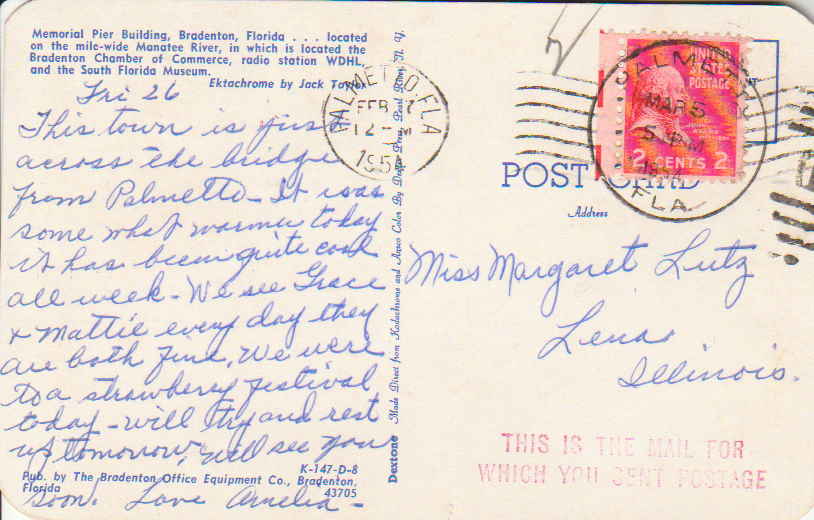 Memorial Pier Building, Bradenton, Florida . . . located
on the mile-wide Manatee River, in which is located the
Bradenton Chamber of Commerce, radio station WDHL,
and the South Florida Museum.
Ektachrome by Jack
Fri 26
This town is just
across the bridge
from Palmetto - It was
some what warmer today
it has been quite cool
all week - We see Grace
& Mattie every day they
are both fine. We were
to a strawberry festival
today - will try and rest
up tomorrow, will see you
soon. Love Amelia -
Pub. by The Bradenton Office Equipment Co., Bradenton,
Florida
K-147-D-8
43705
Dextone Made Direct from Kodachrome and Ansco Color By Dexter Press, Pearl River, N. Y.
PALMETTO, FLA
FEB
12 - M
1954
PALMETTO
MAR 5
5 PM
1954
FLA.
UNITED
STATES
POSTAGE
2 CENTS 2
POST CARD
Address
Miss Margaret Lutz
Lena
Illinois.
THIS IS THE MAIL FOR
WHICH YOU SENT POSTAGE